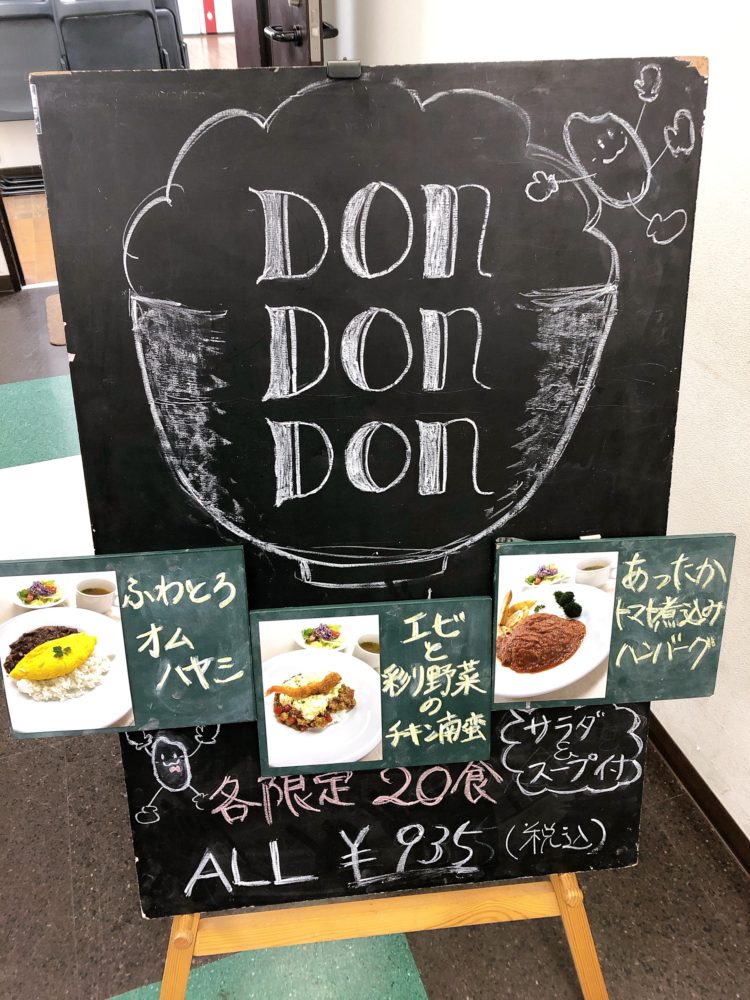 DON
DON
DON
ふわとろ
オム
ハヤシ
エビ
と
彩り野菜
の
チキン南蛮
あったか
トマト煮込み
ハンバーグ
サラダ
&
スープ付
各限定 20食
ALL ¥935 (税込)